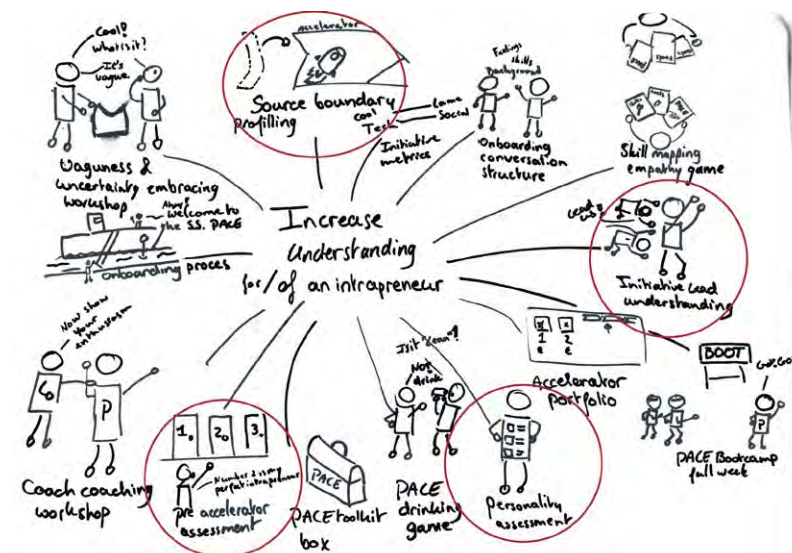 Cool!
What is it?
It's
vague.
Vaguness &
uncertainty embracing
workshop
accelerator
Source boundary
profilling
cool
Tech
Lame
Social
Initiative
metrics
Feelings
Skills
Background
Onboarding
conversation
structure
Skill mapping
empathy game
Increase
Understanding
for/of an intrapreneur
Ahoy!
Welcome to
the S.S. PACE
onboarding proces
Lead
us!
Initiative Lead
understanding
Now show
your
enthusiasm
P
Coach coaching
workshop
1. 2. 3.
Number 2 is my
perfect intrapreneur
pre accelerator
assessment
PACE
PACE toolkit
box
Is it "Lean"?
Not
drink
PACE
drinking
game
Personality
assessment
1 2
€ €
Accelerator
portfolio
BOOT
Go! Go!
P
PACE Bootcamp
full week